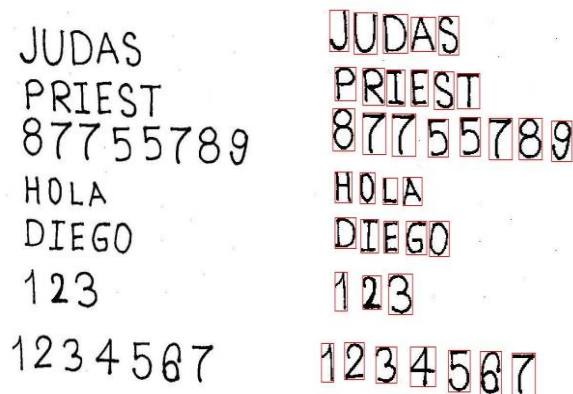 JUDAS
PRIEST
87755789
HOLA
DIEGO
123
1234567
JUDAS
PRIEST
87755789
HOLA
DIEGO
123
1234567